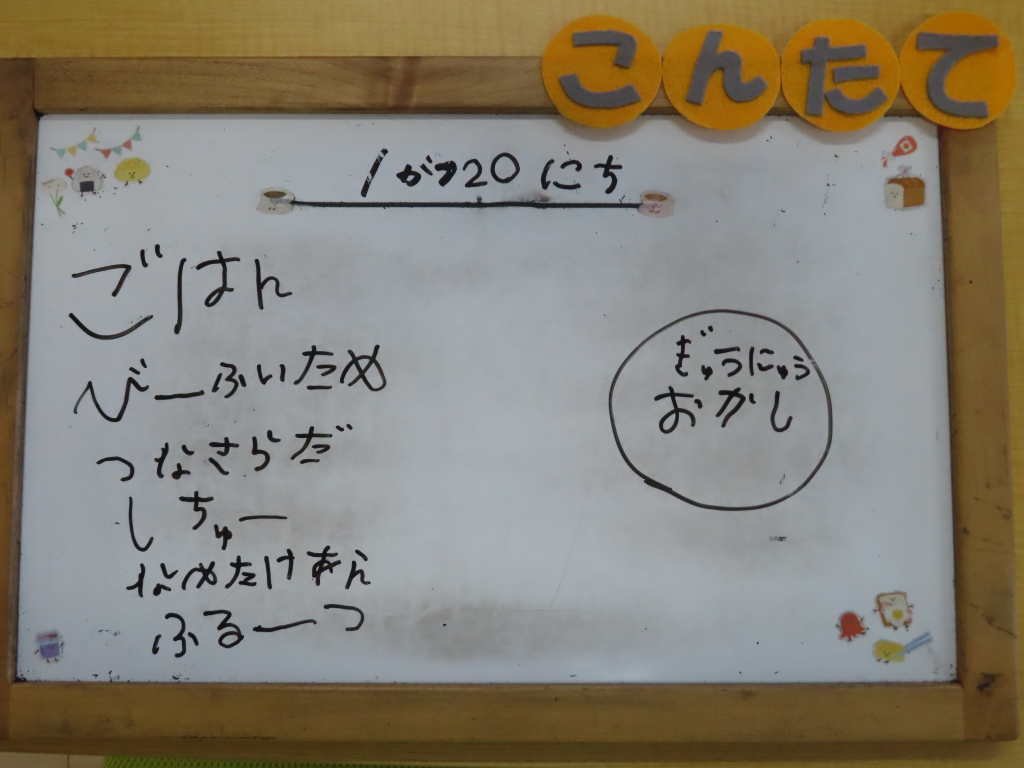 こんたて
1がつ20にち
ごはん
びーふいため
つなさらだ
しちゅー
なめたけあん
ふるーつ
ぎゅうにゅう
おかし